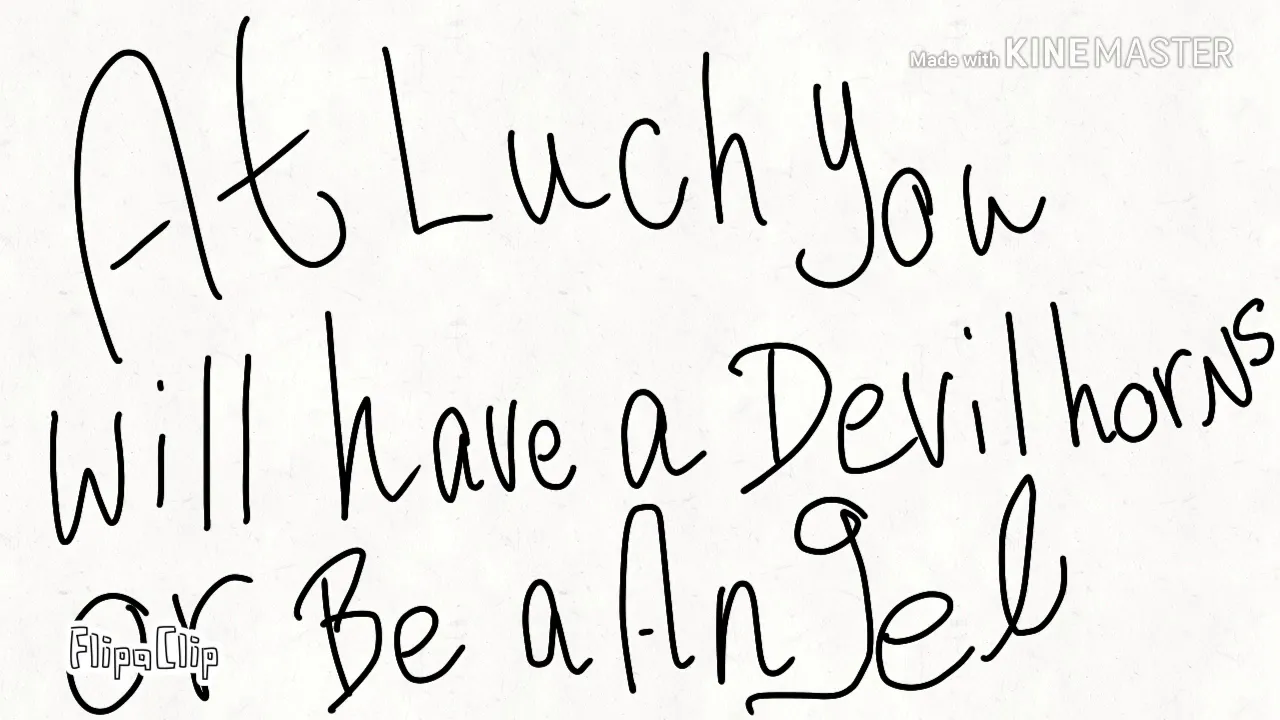 Made with KINEMASTER
At Luch you
will have a Devil horns
or Be a Angel
FlipaClip